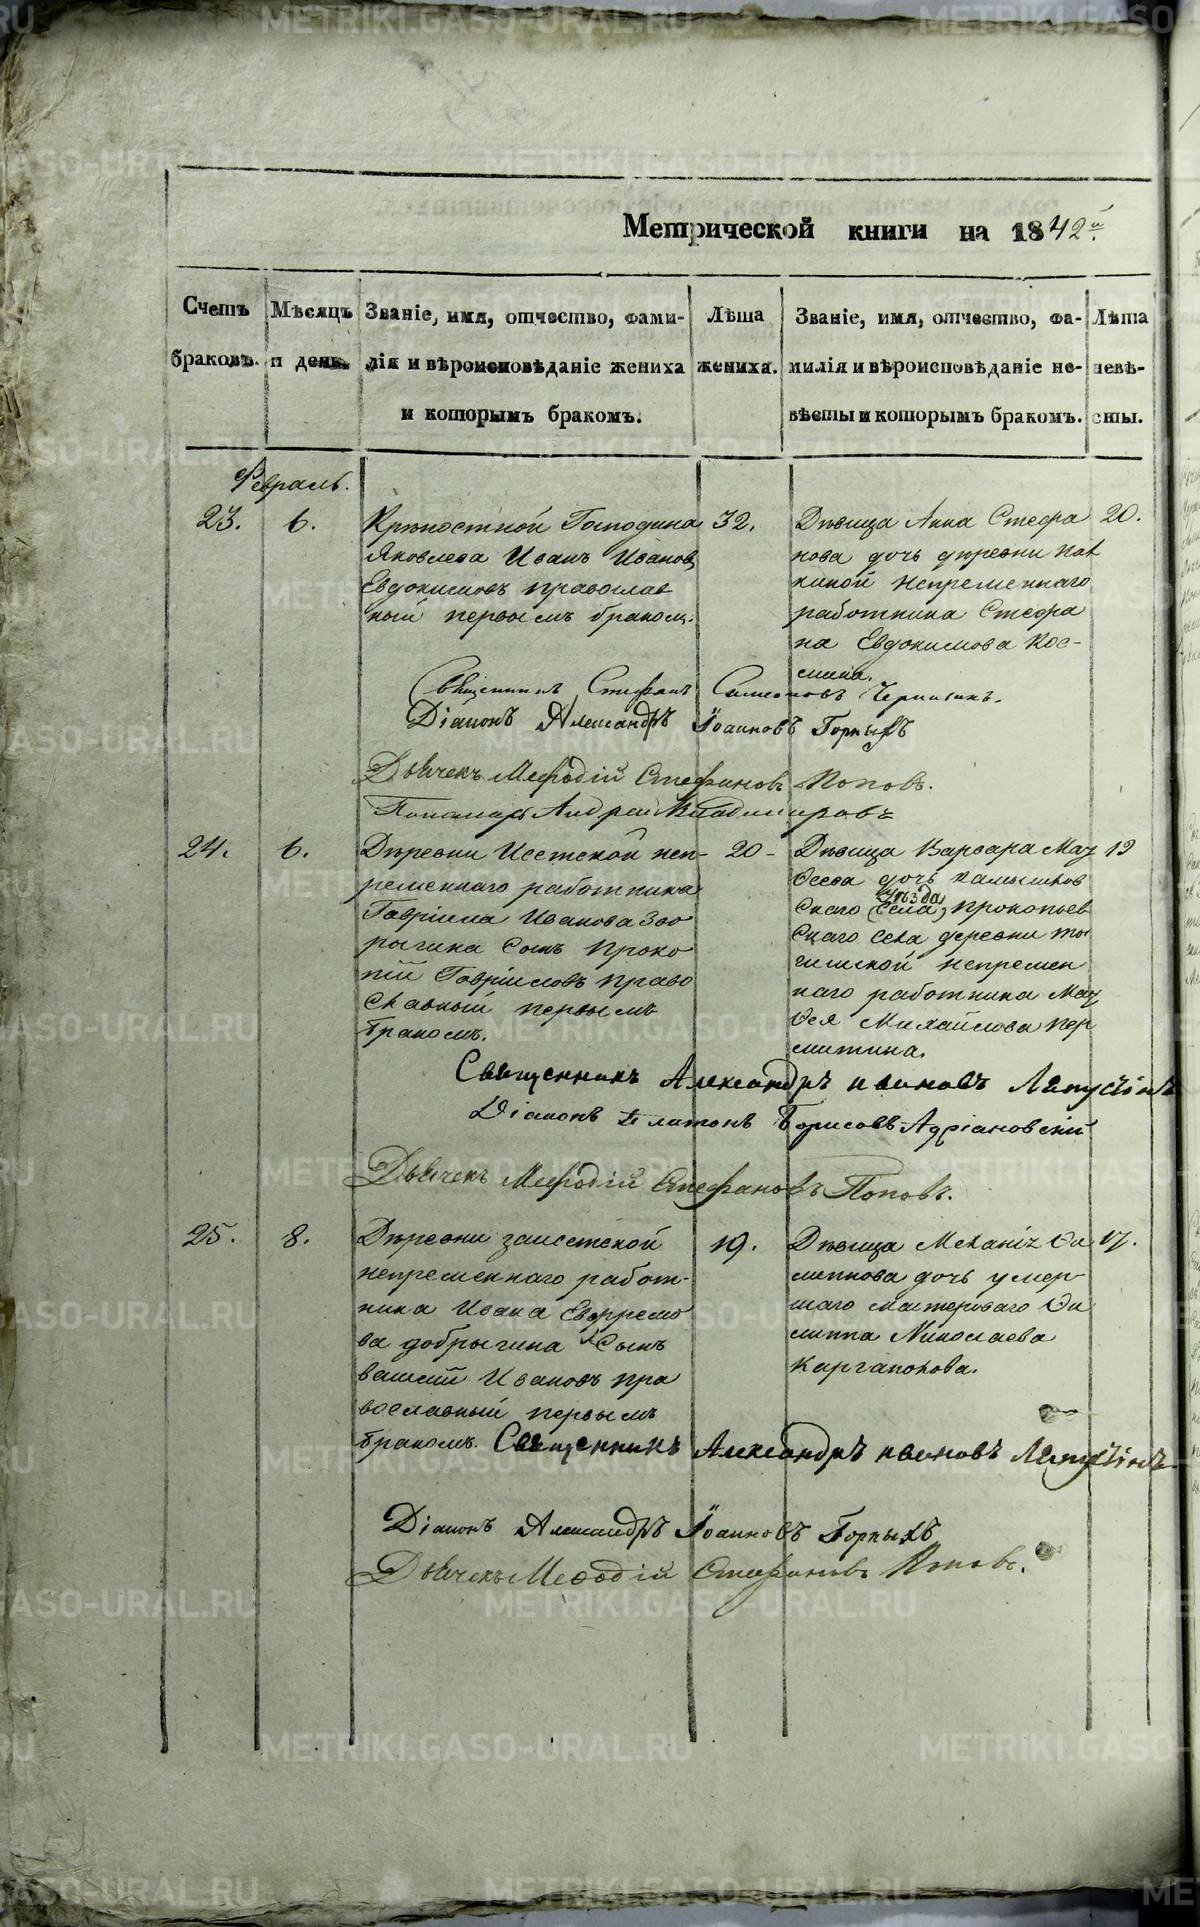 Метрической книги на 1842й.
Счетъ браковъ.
Мѣсяцъ и день.
Званіе, имя, отчество, фами-
лія и вѣроисповѣданіе жениха
и которымъ бракомъ.
Лѣта
жениха.
Званіе, имя, отчество, фа-
милія и вѣроисповѣданіе не-
вѣсты и которымъ бракомъ.
Лѣта
невѣ-
сты.
Февраль.
23.
6.
Крѣпостной Господина
Яковлева Иванъ Ивановъ
Евдокимовъ православ
ный первымъ бракомъ.
32.
Дѣвица Анна Стефа
нова дочь деревни
киной непременнаго
работника Стефа
на Евдокимова Кос-
мина.
20.
Священникъ Стефанъ Симеоновъ
Діаконъ Александръ Іоанновъ Горныхъ
Дьячекъ Мефодій Стефановъ Поповъ.
Пономарь Андрей Владимировъ
24.
6.
Деревни Исетской неп-
ременнаго работника
Гавріила Иванова Збо
рыгина сынъ Проко
пій Гавріиловъ право
славный первымъ
бракомъ.
20
Дѣвица Варвара Маѳ
ѳеева дочь Камышлов
скаго (села) уѣзда Прокопьев
скаго села деревни
непремен
наго работника Маѳ
ѳея Михайлова Пер
митина.
19
Священникъ Александръ Иванновъ Лапустинъ
Діаконъ Платонъ Борисовъ Адріановскій
Дьячекъ Мефодій Стефановъ Поповъ.
25.
8.
Деревни Заисетской
непременнаго работ-
ника Ивана Евфремо
ва Добрыгина сынъ
Василій Ивановъ пра
вославный первымъ
бракомъ.
19.
Дѣвица Меланія Ѳи
липпова дочь умер-
шаго мастероваго Ѳи
липпа Николаева
Каргаполова.
17.
Священникъ Александръ Иванновъ Лапустинъ
Діаконъ Александръ Іоанновъ Горныхъ
Дьячекъ Меѳодій Стефановъ Поповъ.
METRIKI.GASO-URAL.RU